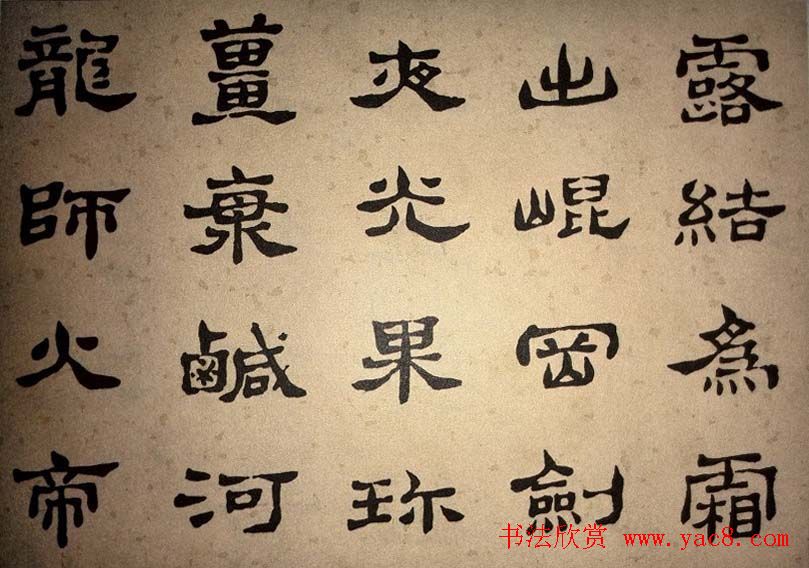 露結為霜
出崐岡劍
夜光果珎
薑鹹河
龍師火帝
书法欣赏 www.yac8.com